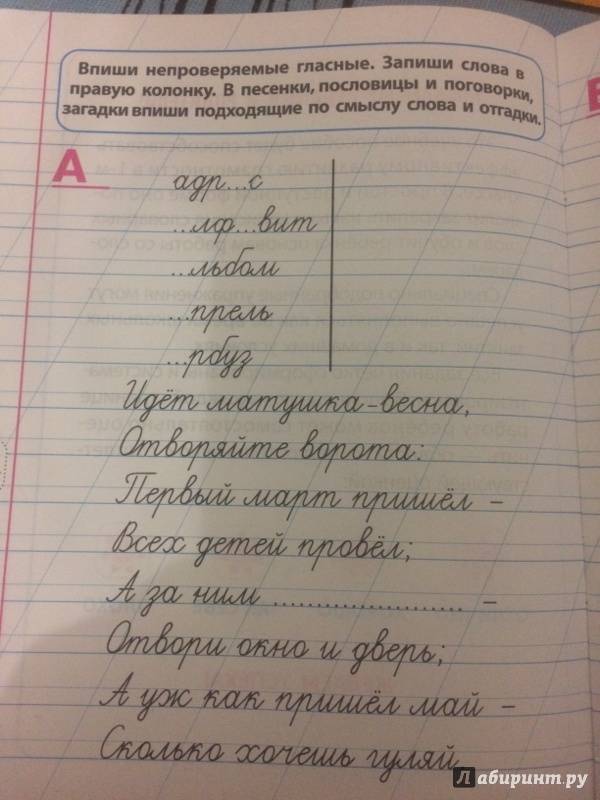 Впиши непроверяемые гласные. Запиши слова в
правую колонку. В песенки, пословицы и поговорки,
загадки впиши подходящие по смыслу слова и отгадки.
А
адр...с
...лф...вит
...льбом
...прель
...рбуз
Идёт матушка-весна,
Отворяйте ворота:
Первый март пришёл –
Всех детей провёл;
А за ним ...................... –
Отвори окно и дверь;
А уж как пришёл май –
Сколько хочешь гуляй.
Лабиринт.ру